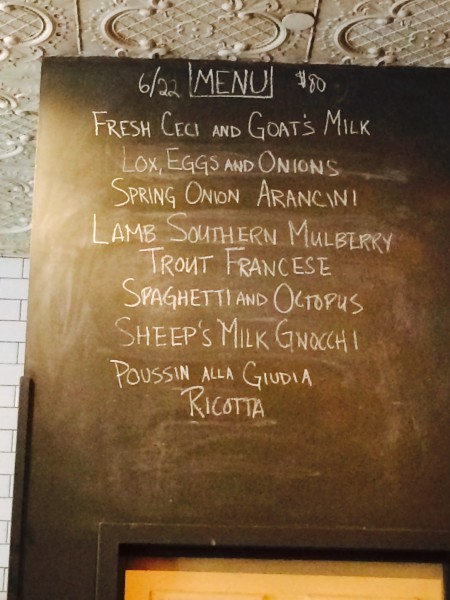 6/22 MENU $80
FRESH CECI AND GOAT'S MILK
LOX, EGGS AND ONIONS
SPRING ONION ARANCINI
LAMB SOUTHERN MULBERRY
TROUT FRANCESE
SPAGHETTI AND OCTOPUS
SHEEP'S MILK GNOCCHI
POUSSIN ALLA GIUDIA
RICOTTA